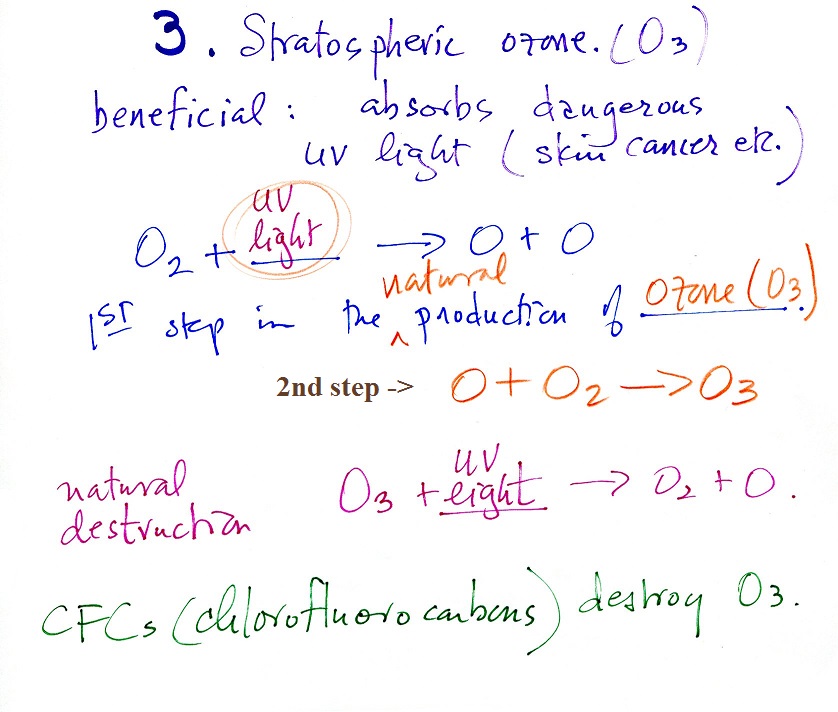 3. Stratospheric ozone. (O3)
beneficial: absorbs dangerous
uv light (skin cancer etc.)
O2 + uv light → O + O
1ST step in the natural production of Ozone (O3).
2nd step -> O + O2 → O3
natural destruction O3 + uv light → O2 + O.
CFCs (chlorofluorocarbons) destroy O3.